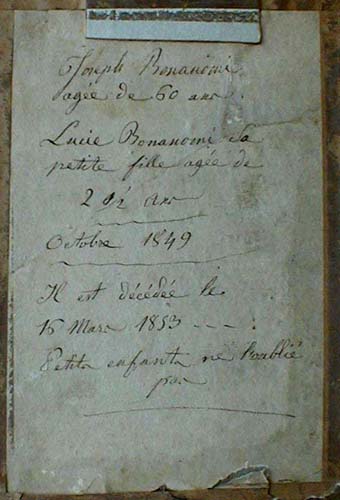 Joseph Bonanomi
agée de 60 ans.
Lucie Bonanomi Sa
petite fille agée de
2 ½ ans
Octobre 1849
Il est décédée le
16 Mars 1853 - - - .
Petits enfants ne l'oublié
pas